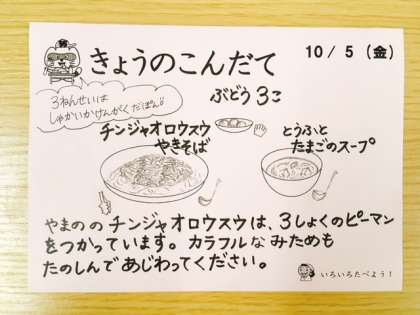 きょうのこんだて
10/5(金)
3ねんせいは
しゃかいかけんがくだぽん!
ぶどう 3こ
チンジャオロウスウ
やきそば
とうふと
たまごのスープ
やまの の チンジャオロウスウは、3しょくのピーマン
をつかっています。カラフルなみためも
たのしんであじわってください。
いろいろたべよう!